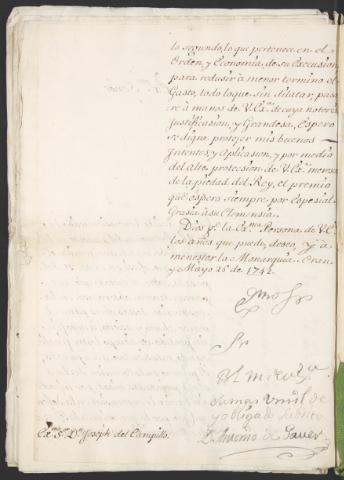 lo segundo, lo que pertenece en el
Orden, y Economia, de su Execusion
para redusir à menor termino el
Gasto, todo lo que, sin dilatar, pasa
re à manos de V. Ex.ª de cuya notoria
Justificasion, y Grandesa, Espero
se digne protejer mis buenos
Intentos, y Aplicasion, y por medio
del alto protecsion de V. Ex.ª meresca
de la piedad del Rey, el premio
que espera siempre por Espesial
Grasia à su Clemensia.
Dios g.e la Ex.ma Persona de V.E.
los años que puede, deseo, y à
menester la Monarquia. Oran
y Mayo 25 de 1742.
Exmo Sr
Sr
B l M de V. Ex.a
su mas humil de
y obligado Servidor
D. Antonio de Gaver
Ex.mo S.r D.n Joseph del Campillo.